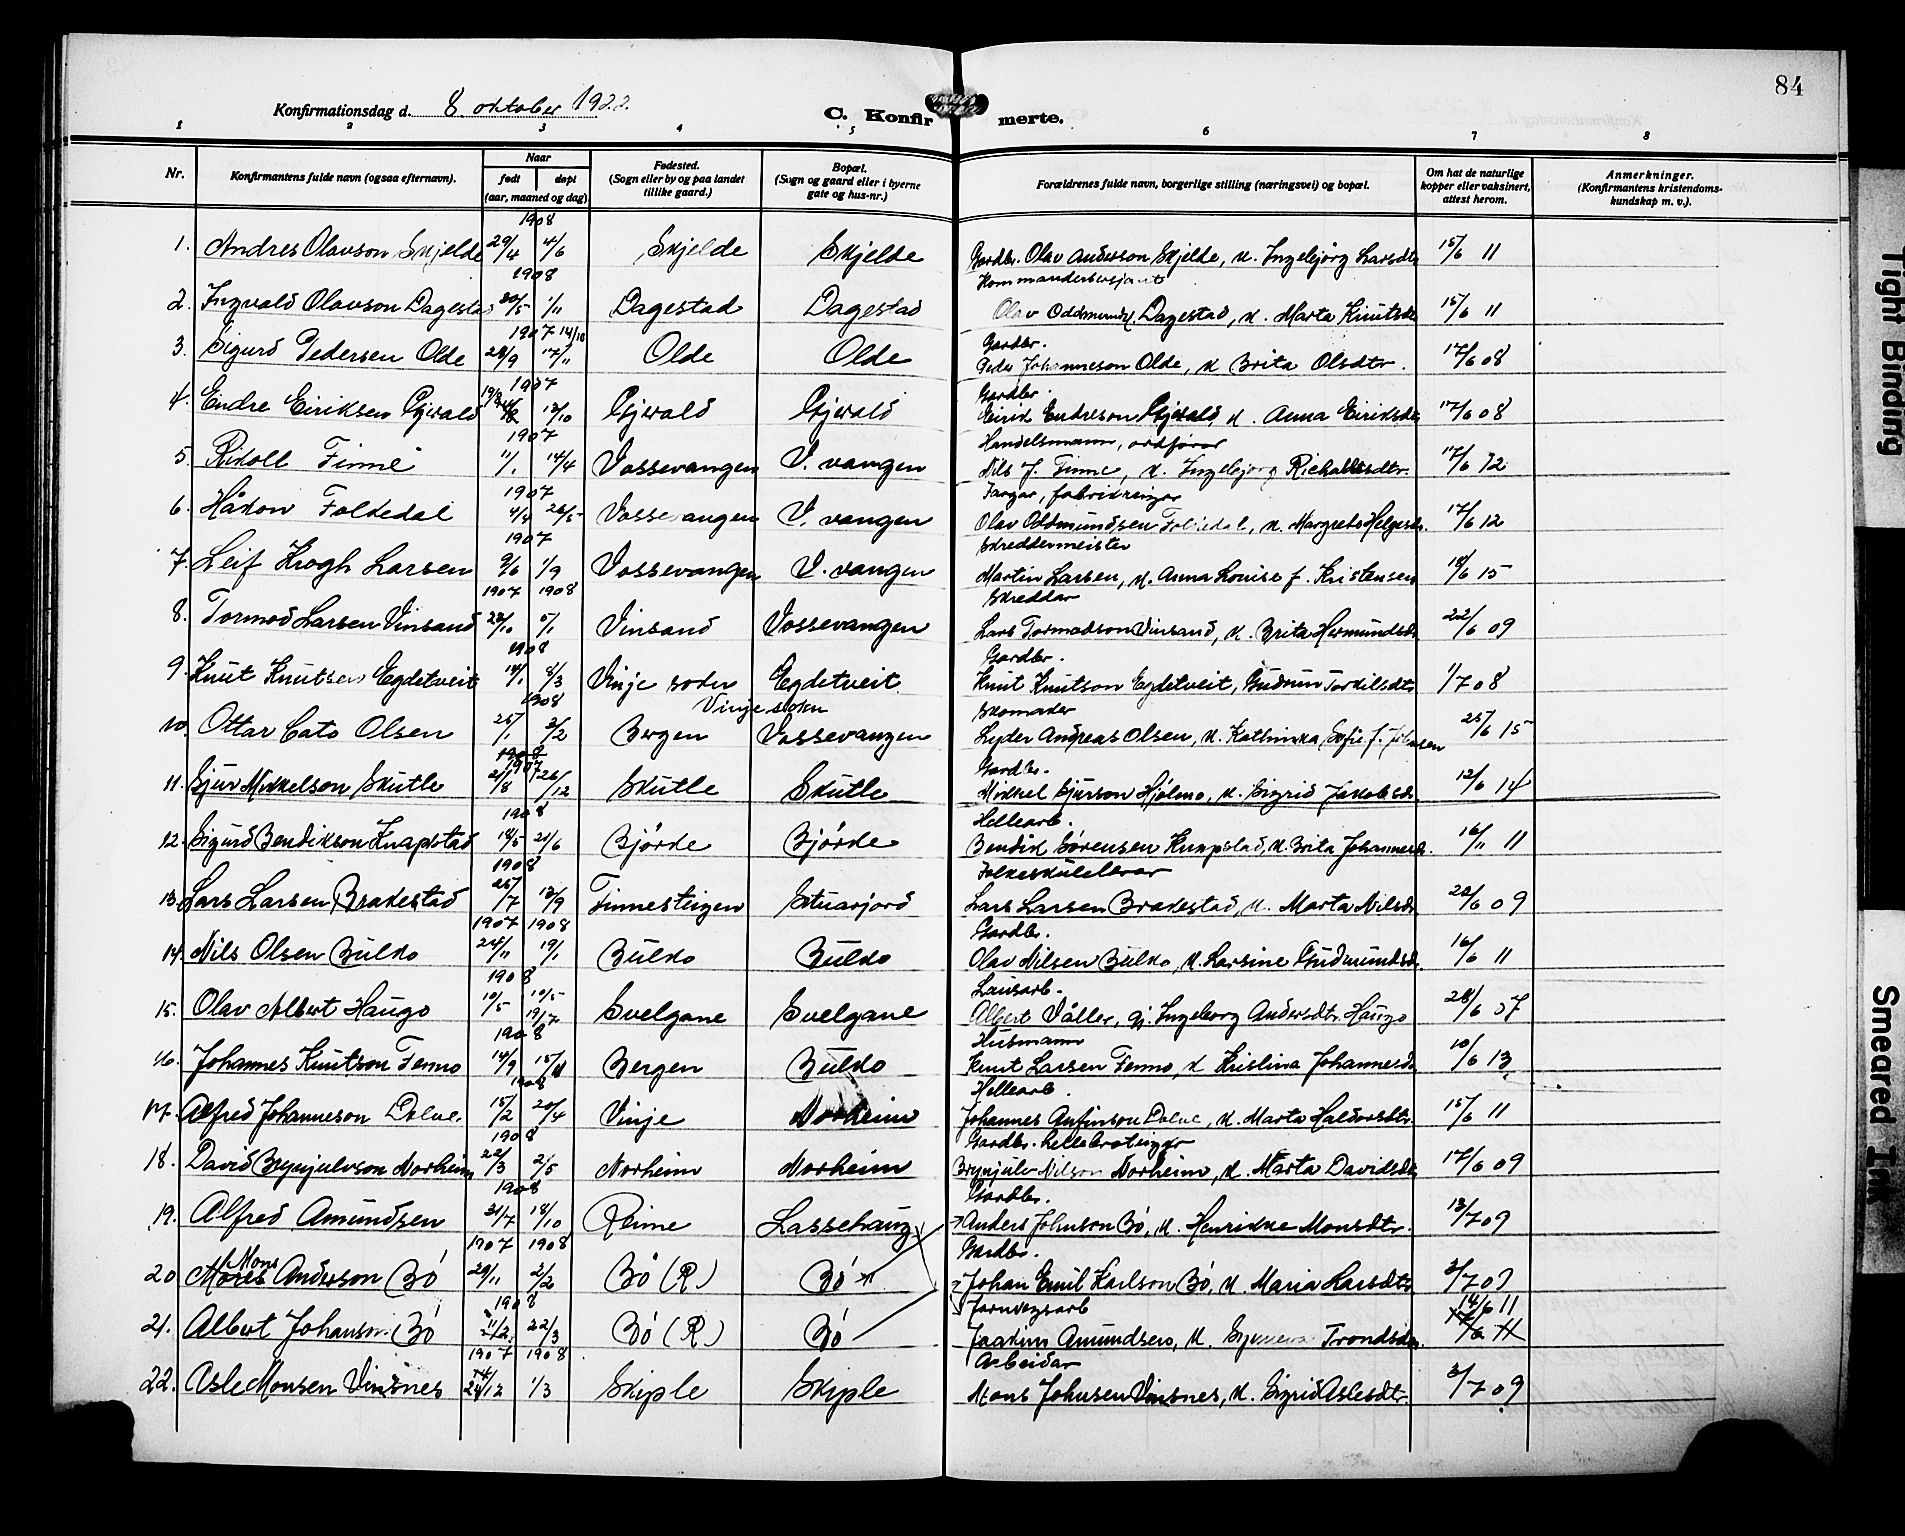 84
Konfirmationsdag d. 8 oktober 1922.
C. Konfirmerte.
1 2 3 4 5 6 7 8
Nr.
Konfirmantens fulde navn (ogsaa efternavn).
Naar
født døpt
(aar, maaned og dag)
Fødested.
(Sogn eller by og paa landet
tillike gaard.)
Bopæl.
(Sogn og gaard eller i byerne
gate og hus-nr.)
Forældrenes fulde navn, borgerlige stilling (næringsvei) og bopæl.
Om hat de naturlige
kopper eller vaksinert,
attest herom.
Anmerkninger.
(Konfirmantens kristendoms-
kundskap m. v.).
1908
1. Andres Olavson Skjelde 29/4 4/6 Skjelde Skjelde Gardbr. Olav Anderson Skjelde, k. Ingebjørg Larsdtr 15/6 11
1908 Kommandersersjant
2. Ingvald Olavson Dagestad 20/5 1/11 Dagestad Dagestad Olav Oddmunds. Dagestad, k. Marta Knutsdtr 15/6 11
1907 14/10 Gardbr.
3. Sigurd Pedersen Olde 28/9 17/11 Olde Olde Peder Johanneson Olde, k Brita Olsdtr. 17/6 08
1907 Gardbr
4. Endre Eiriksen Gjerald 19/9 13/10 Gjerald Gjerald Eirik Endreson Gjerald, k. Anna Eiriksdtr 17/6 08
1907 Handelsmann, ordførar
5. Rikoll Finne 11/1 14/4 Vossevangen V. vangen Nils J. Finne, k. Ingebjørg Richoldsdtr. 17/6 12
1907 Fargar, fabrikeigar
6. Håkon Foldedal 4/4 26/5 Vossevangen V. vangen Olav Oddmundsen Foldedal, k. Margreta Helgesdtr. 17/6 12
1907 Skreddermeister
7. Leif Krogh Larsen 9/6 1/9 Vossevangen V. vangen Martin Larsen, k. Anna Louise f. Kristensen 18/6 15
1907 1908 Skreddar
8. Tormod Larsen Vinsand 28/10 5/1 Vinsand Vossevangen Lars Tormodson Vinsand, k. Brita Hermundsdtr 22/6 09
1908 Gardbr.
9. Knut Knutsen Egdetveit 14/1 8/3 Vinje sokn Egdetveit Knut Knutson Egdetveit, Gudrun Torkilsdtr 1/7 08
1908 Vinje sokn Skomaker
10. Ottar Cato Olsen 25/1 2/2 Bergen Vossevangen Lyder Andreas Olsen, k. Kathinka Sofie f. Johnsen 25/6 15
1908 1907 Gardbr.
11. Sjur Mikkelson Skutle 21/8 26/12 Skutle Skutle Mikkel Sjurson Hjølmo, k. Sigrid Jakobsdtr. 12/6 14
1908 Hellearb.
12. Sigurd Bendikson Knapstad 18/5 21/6 Bjørde Bjørde Bendik Sørensen Knapstad, k. Brita Johannesdtr. 16/11 11
1908 Folkeskulelærar
13. Lars Larsen Brakestad 25/7 13/9 Finnesteigen Stuarjord Lars Larsen Brakestad, k. Marta Nilsdtr. 22/6 09
1907 1908 Gardbr.
14. Nils Olsen Bulko 24/11 19/1 Bulko Bulko Olav Nilsen Bulko, k. Larsine Gudmundsdtr. 16/6 11
1908 Lausarb.
15. Olav Albert Haugo 10/5 10/5 19/7 Svelgane Svelgane Albert Våller, gj. Ingeborg Andersdtr. Haugo 28/6 07
1908 Husmann
16. Johannes Knutson Fenno 14/9 15/11 Bergen Bulko Knut Larsen Fenno, k Kristina Johannesdtr. 10/6 13
1908 Hellearb.
17. Alfred Johanneson Dolve. 15/2 20/4 Vinje Norheim Johannes Anfinson Dolve, k. Marta Haldorsdtr 15/6 11
1908 Gardbr. hellebroteigar
18. David Brynjulvson Norheim 22/3 2/5 Norheim Norheim Brynjulv Nilson Norheim, k. Marta Davidsdtr 17/6 09
1908 Gardbr.
19. Alfred Amundsen 21/7 18/10 Reime Lassehaug Anders Johnson Bö, k. Henrikke Monsdtr. 13/7 09
1907 1908 Gardbr.
20 Mons Anderson Bö 29/11 2/2 Bö (R) Bö Johan Emil Karlson Bö, k. Maria Larsdtr. 3/7 09
1908 Jarnvegsarb 14/6 11
21. Albert Johanson Bö 11/2 22/3 Bö (R) Bö Joakim Amundsen, k. Synneva Trondsdtr.
1907 1908 Arbeidar
22. Asle Monsen Vinsnes 24/12 1/3 Skiple Skiple Mons Johnsen Vinsnes, k. Sigrid Aslesdtr. 3/7 09
Tight Binding
Smeared Ink